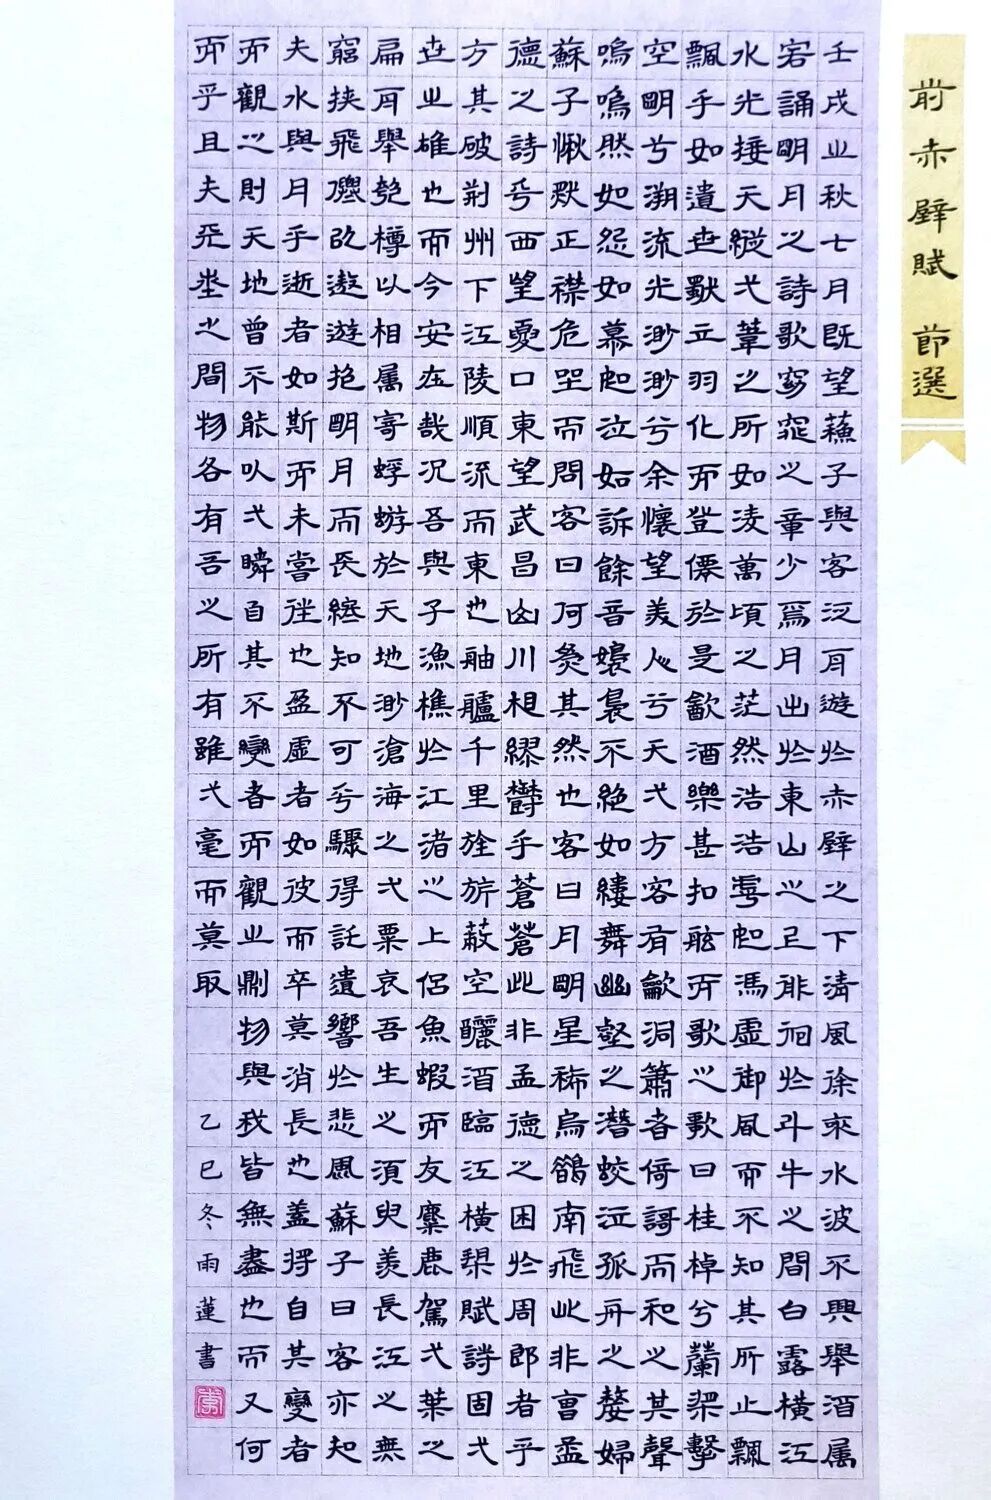 前赤壁賦 節選
壬戌之秋七月既望蘇子與客泛舟遊於赤壁之下清風徐來水波不興舉酒屬
客誦明月之詩歌窈窕之章少焉月出於東山之上徘徊於斗牛之間白露橫江
水光接天縱弌葦之所如凌萬頃之茫然浩浩乎如馮虛御風而不知其所止飄
飄乎如遺世獨立羽化而登僊於是飲酒樂甚扣舷而歌之歌曰桂棹兮蘭槳擊
空明兮溯流光渺渺兮余懷望美人兮天弌方客有龡洞簫者倚謌而和之其聲
嗚嗚然如怨如慕如泣如訴餘音嬝嬝不絕如縷舞幽壑之潛蛟泣孤舟之嫠婦
蘇子愀然正襟危坐而問客曰何為其然也客曰月明星稀烏鵲南飛此非曹孟
德之詩乎西望夏口東望武昌山川相繆鬱乎蒼蒼此非孟德之困於周郎者乎
方其破荊州下江陵順流而東也舳艫千里旌旂蔽空釃酒臨江橫槊賦詩固弌
世之雄也而今安在哉況吾與子漁樵於江渚之上侶魚蝦而友麋鹿駕弌葉之
扁舟舉匏樽以相屬寄蜉蝣於天地渺滄海之弌粟哀吾生之須臾羨長江之無
窮挾飛僊以遨遊抱明月而長終知不可乎驟得託遺響於悲風蘇子曰客亦知
夫水與月乎逝者如斯而未嘗往也盈虛者如彼而卒莫消長也蓋將自其變者
而觀之則天地曾不能以弌瞬自其不變者而觀之則物與我皆無盡也而又何
而乎且夫天地之間物各有吾之所有雖弌毫而莫取
乙巳冬雨蓮書